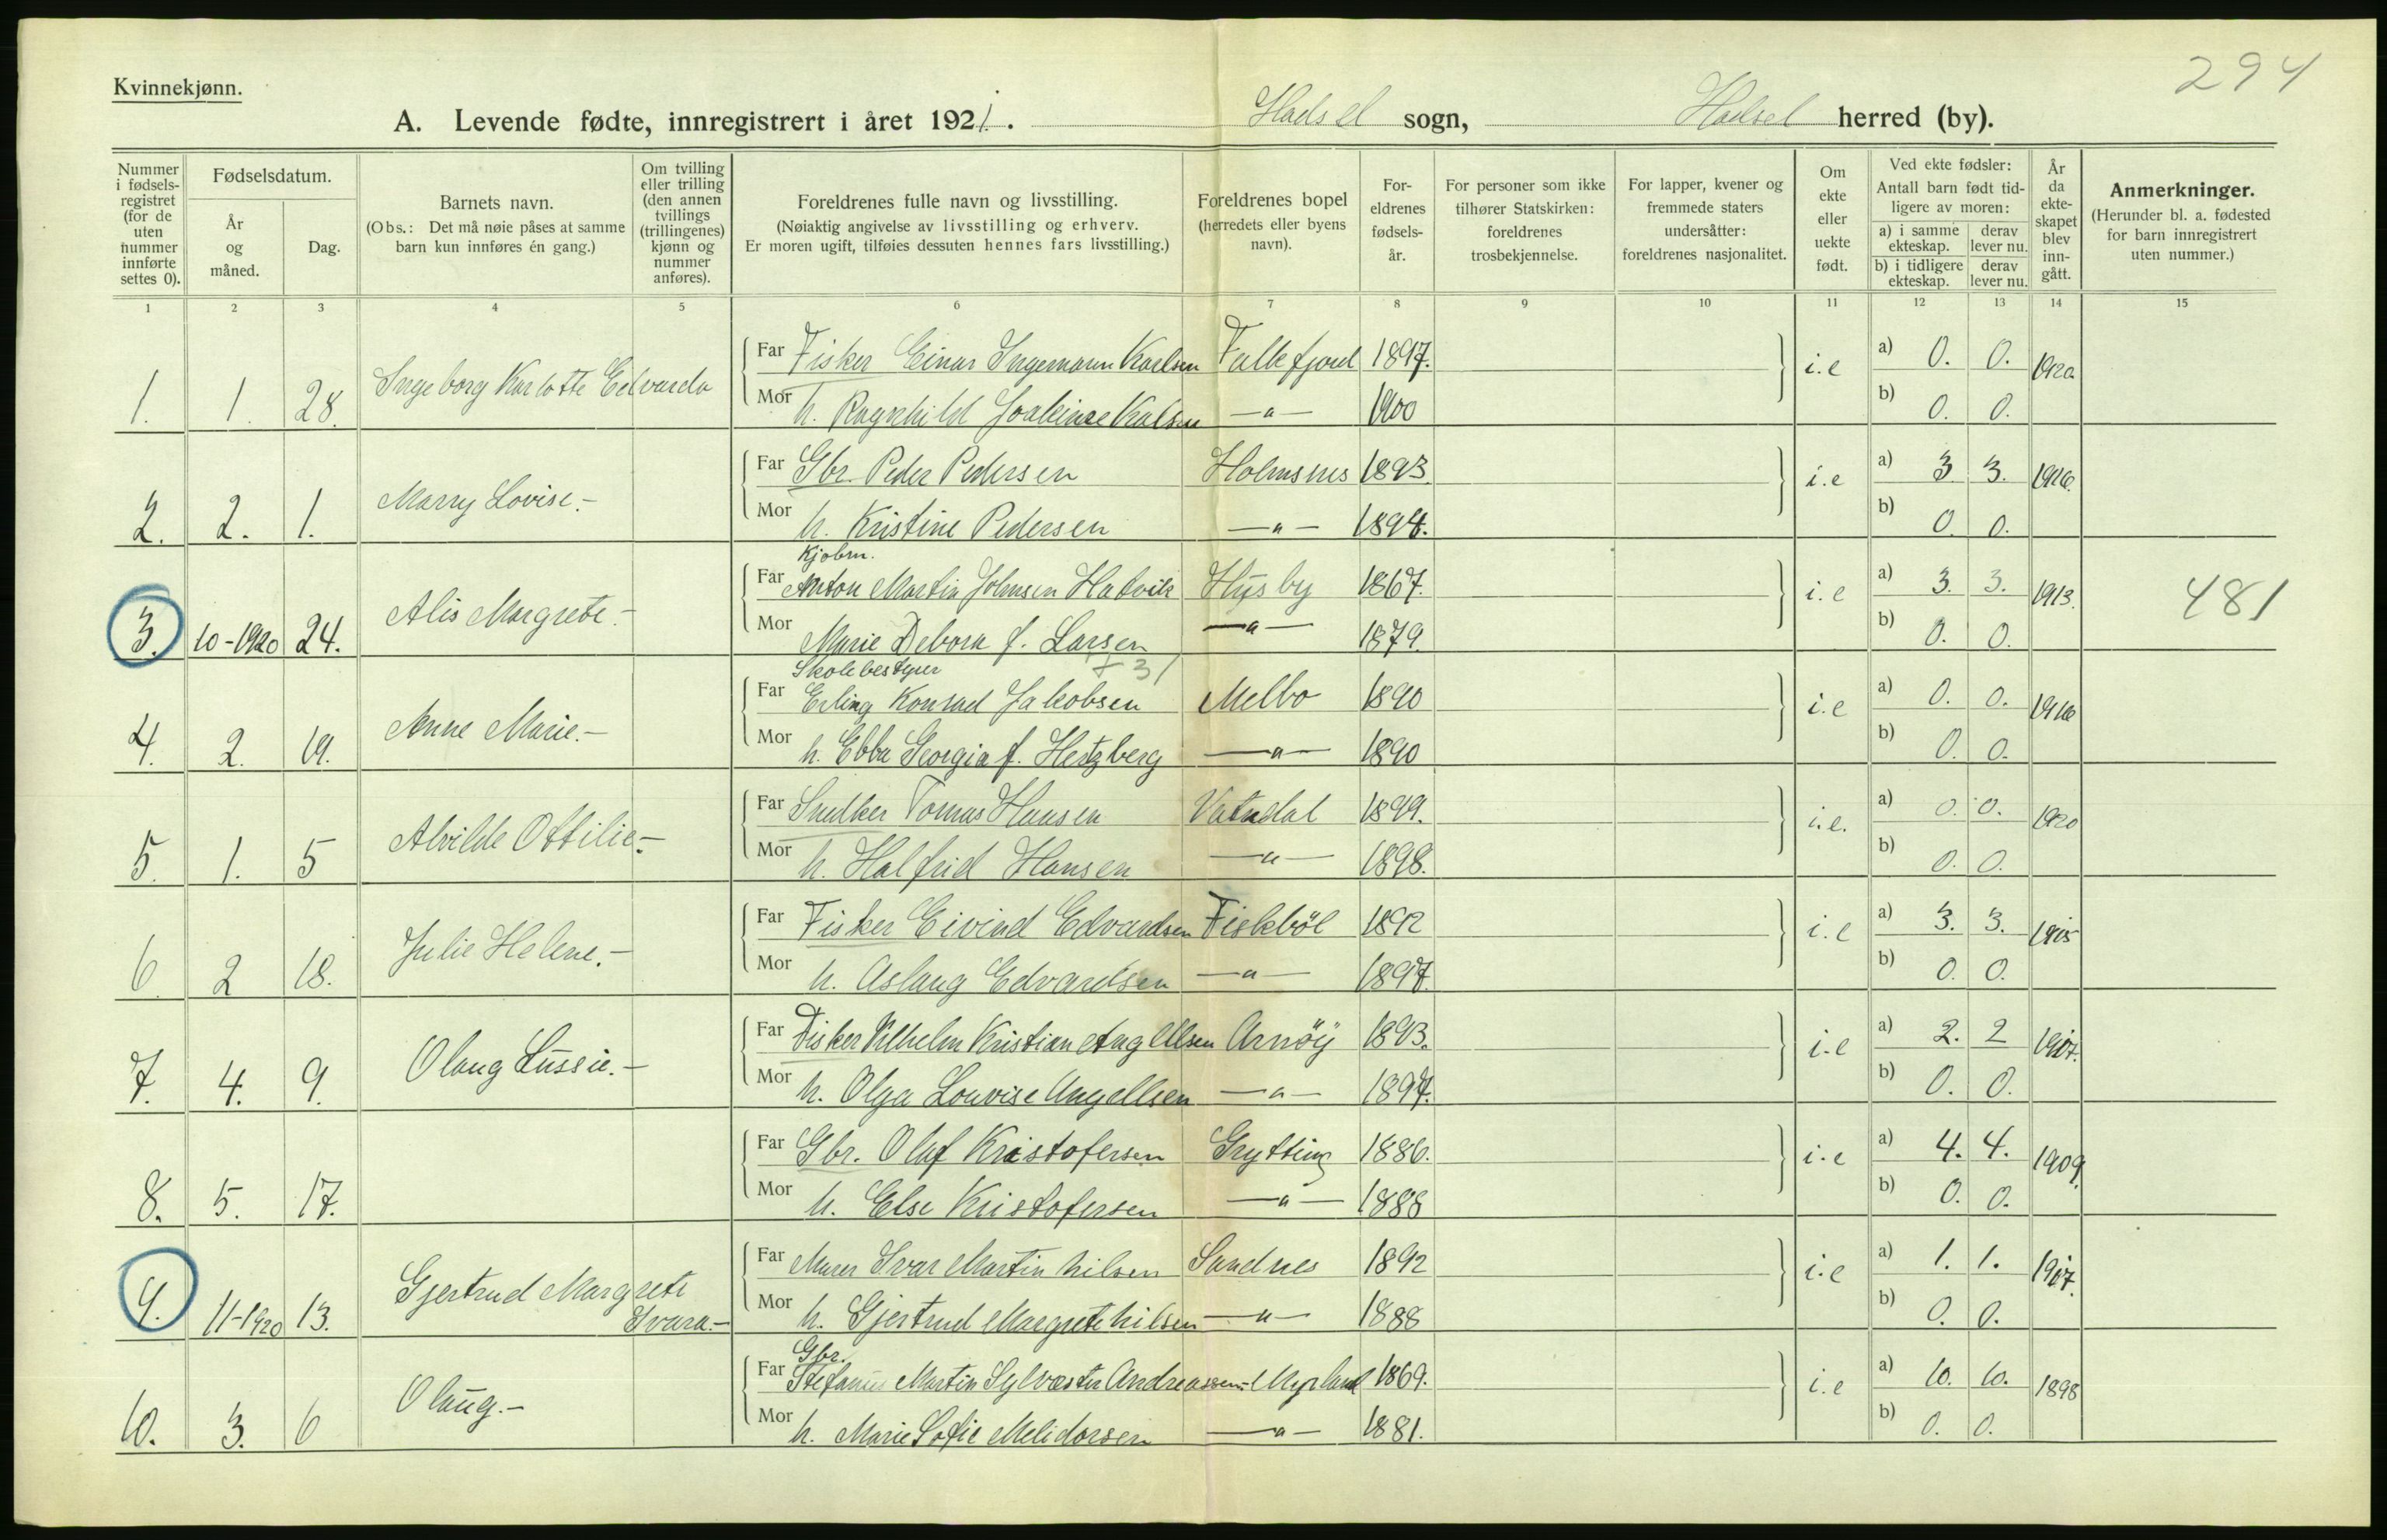 294
Kvinnekjønn.
A. Levende fødte, innregistrert i året 1921. Hadsel sogn, Hadsel herred (by).
Nummer i fødsels-registret (for de uten nummer innførte settes 0).
Fødselsdatum.
År og måned.
Dag.
Barnets navn.
(Obs.: Det må nøie påses at samme barn kun innføres én gang.)
Om tvilling eller trilling (den annen tvillings (trillingenes) kjønn og nummer anføres).
Foreldrenes fulle navn og livsstilling.
(Nøiaktig angivelse av livsstilling og erhverv.
Er moren ugift, tilføies dessuten hennes fars livsstilling.)
Foreldrenes bopel
(herredets eller byens navn).
For-eldrenes fødsels-år.
For personer som ikke tilhører Statskirken: foreldrenes trosbekjennelse.
For lapper, kvener og fremmede staters undersåtter: foreldrenes nasjonalitet.
Om ekte eller uekte født.
Ved ekte fødsler:
Antall barn født tid-ligere av moren:
a) i samme ekteskap.
derav lever nu.
b) i tidligere ekteskap.
derav lever nu.
År da ekte-skapet blev inn-gått.
Anmerkninger.
(Herunder bl. a. fødested for barn innregistrert uten nummer.)
1 2 3 4 5 6 7 8 9 10 11 12 13 14 15
1. 1. 28. Ingeborg Karlotte Edvarda
Far Fisker Einar Ingemann Karlsen Falkfjord 1897. i.e a) 0. 0. 1920
Mor h. Ragnhild Joakime Kalsen —"— 1900 b) 0. 0.
2. 2. 1. Marry Lovise.-
Far Gbr. Peder Pedersen Holmsnes 1893. i.e a) 3 3. 1916.
Mor h. Kristine Pedersen —"— 1894. b) 0. 0.
3. 10-1920 24. Alis Margrete.-
Kjøbm.
Far Anton Martin Johnsen Hatvik Husby 1867. i.e a) 3. 3. 1913. 481
Mor Marie Debora f. Larsen —"— 1879. b) 0. 0.
4. 2. 19. Anne Marie.-
Skolebestyrer + 31
Far Erling Konrad Jakobsen Melbo 1890 i.e a) 0. 0. 1916
Mor h. Ebba Georgia f. Hertzberg —"— 1890 b) 0. 0.
5. 1. 5 Alvilde Ottilie.-
Far Snedker Tomas Hansen Vatndal 1899. i.e. a) 0. 0. 1920
Mor h. Halfrid Hansen —"— 1898. b) 0. 0.
6. 2 18. Julie Helene.-
Far Fisker Eivind Edvardsen Fiskböl 1892 i.e a) 3. 3. 1915
Mor h. Aslaug Edvardsen —"— 1897. b) 0. 0.
7. 4. 9. Olaug Lussie.-
Far Fisker Vilhelm Kristian Angellsen Arnöy 1893. i.e a) 2. 2 1917.
Mor h. Olga Louvise Angellsen —"— 1897. b) 0. 0.
8. 5. 17.
Far Gbr. Olaf Kristofersen Grytting 1886. i.e a) 4. 4. 1909.
Mor h. Else Kristofersen —"— 1888 b) 0. 0.
9. 11-1920 13. Gjertrud Margrete Ivara.-
Far Murer Ivar Martin Nilsen Sandnes 1892 i.e a) 1. 1. 1917.
Mor h. Gjertrud Margrete Nilsen —"— 1888 b) 0. 0.
10. 3. 6 Olaug.-
Gbr.
Far Stefanus Martin Sylvester Andreassen Myrland 1869. i.e a) 10. 10. 1898
Mor h. Marie Sofie Melidorsen —"— 1881. b) 0. 0.